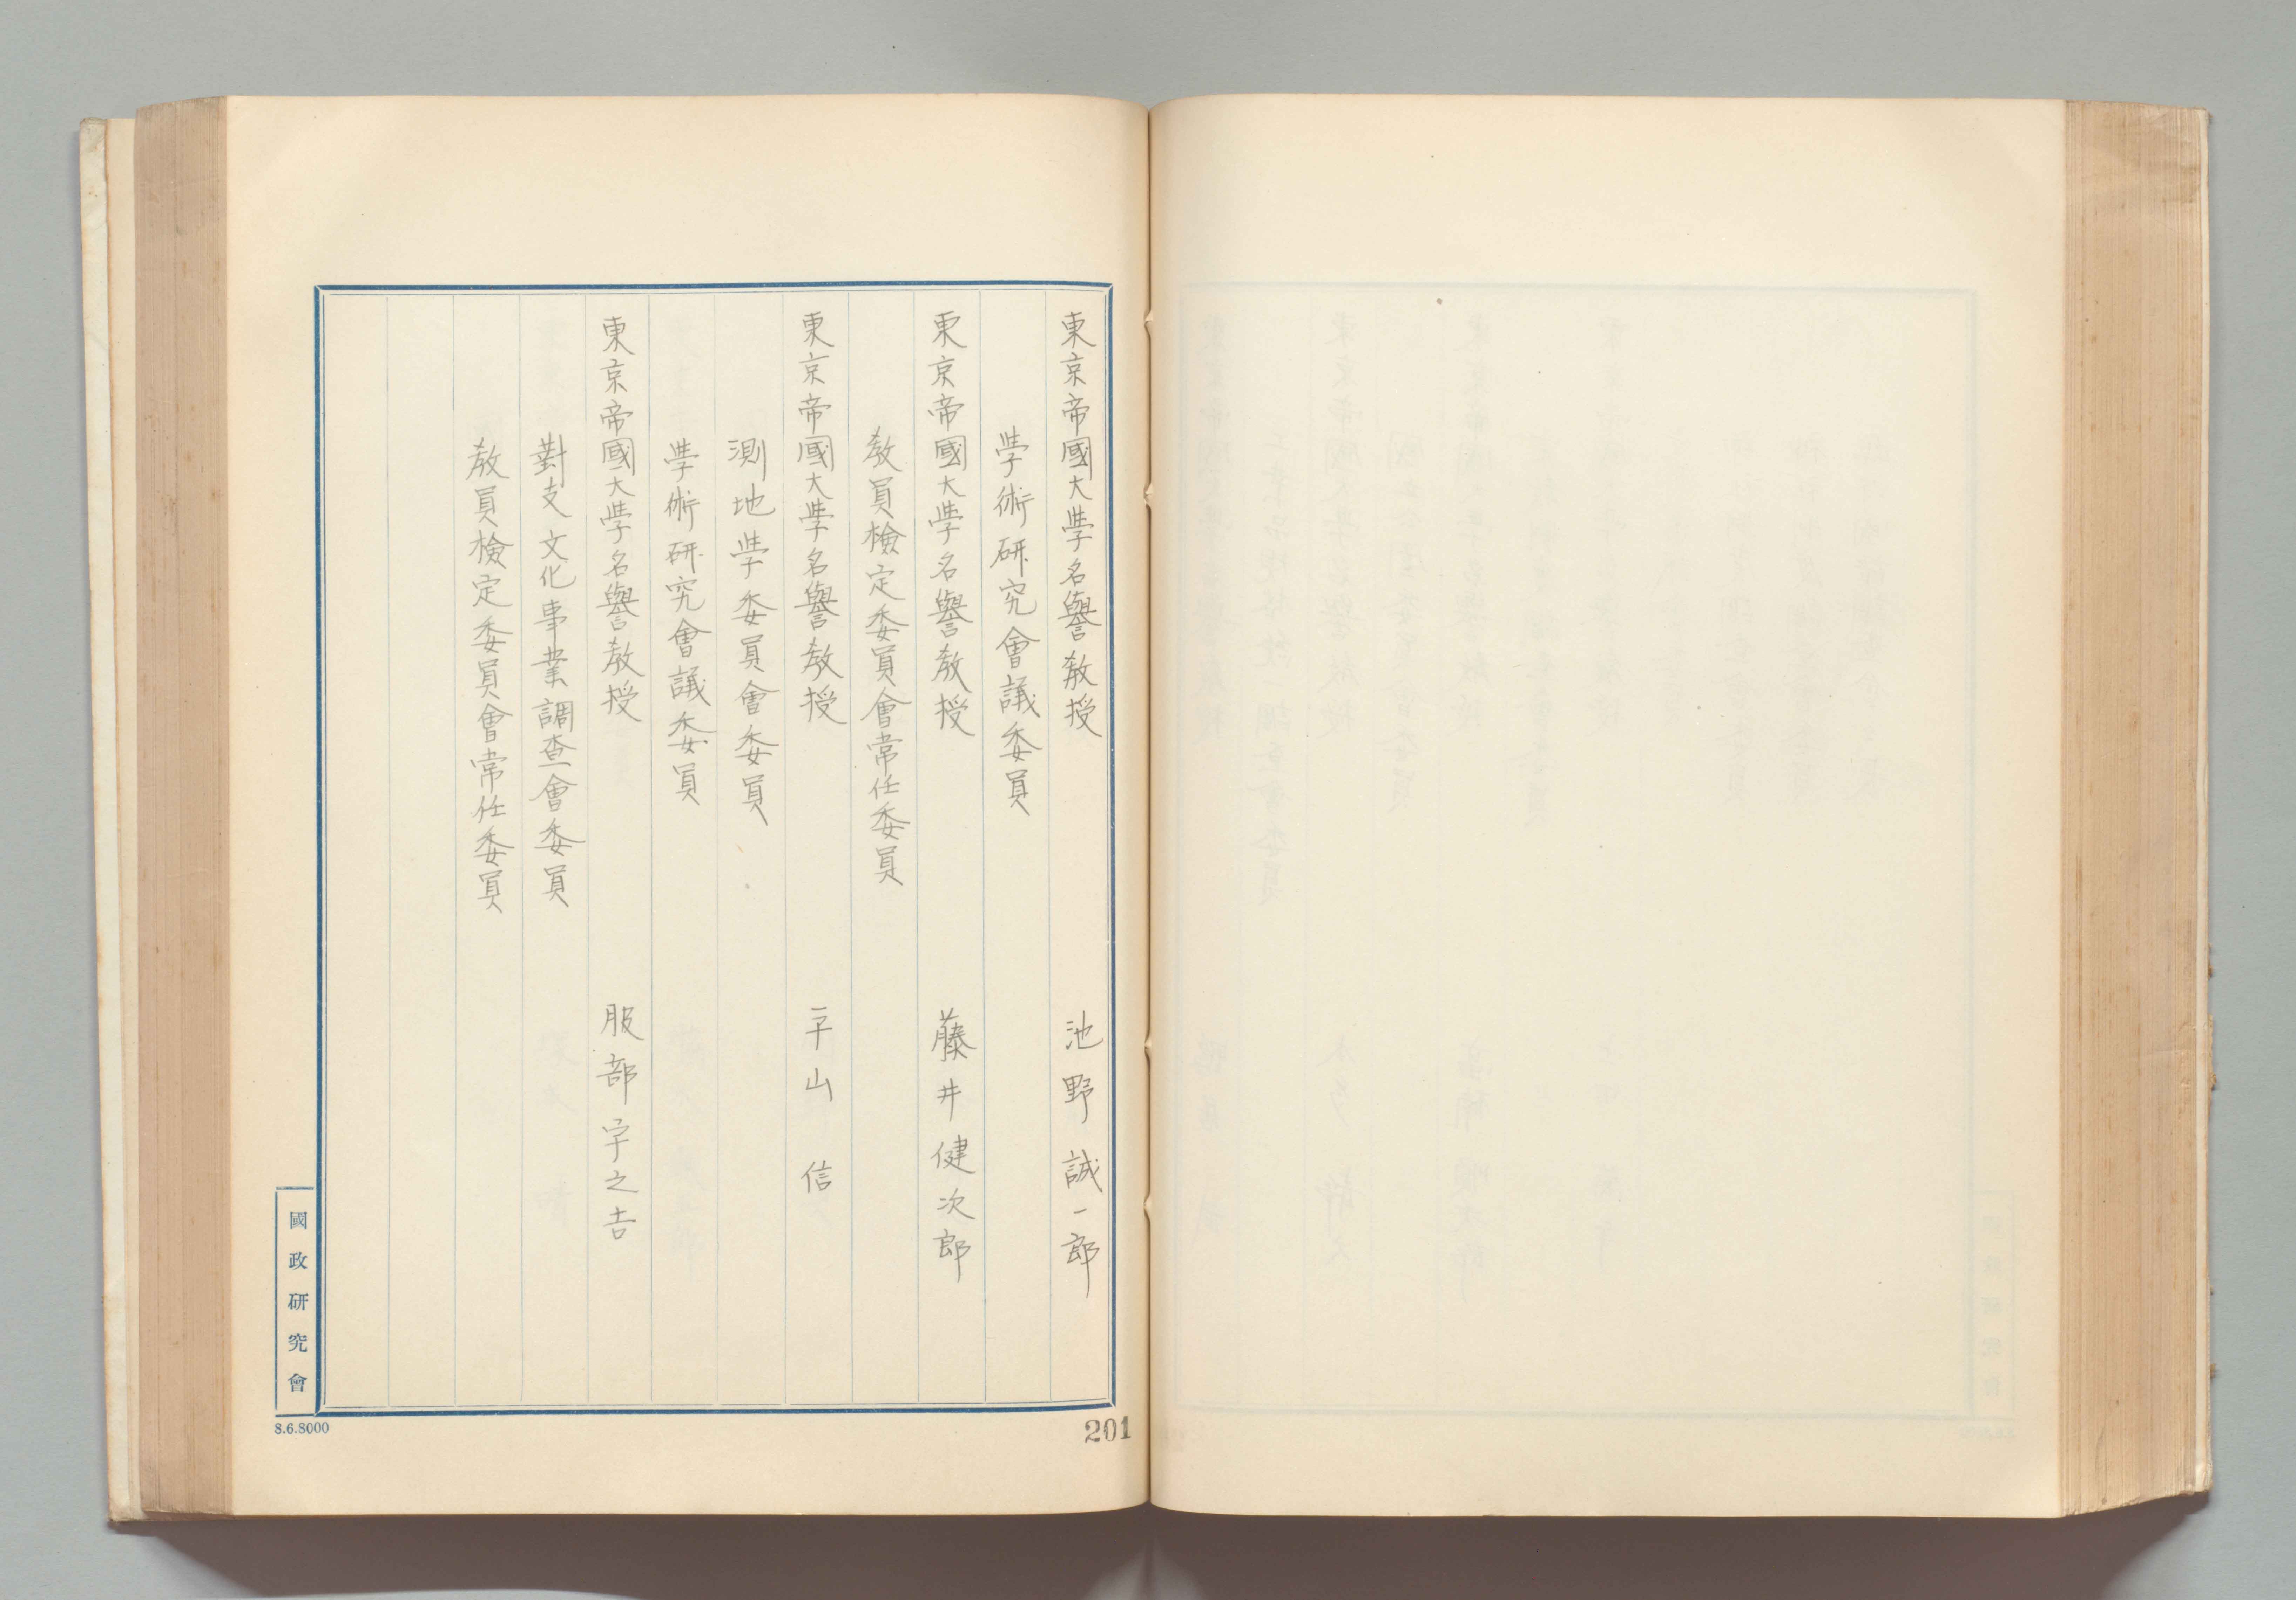 東京帝國大學名譽敎授　池野誠一郎
學術研究會議委員
東京帝國大學名譽敎授　藤井健次郎
敎員檢定委員會常任委員
東京帝國大學名譽敎授　平山信
測地學委員會委員
學術研究會議委員
東京帝國大學名譽敎授　服部宇之吉
對支文化事業調查會委員
敎員檢定委員會常任委員
國政研究會
8.6.8000
201